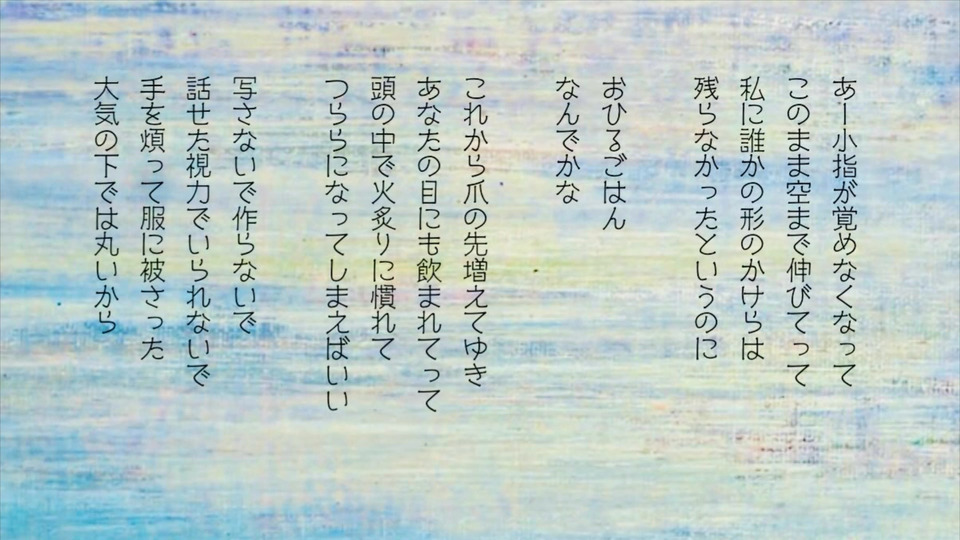 あー小指が覚めなくなって
このまま空まで伸びてって
私に誰かの形のかけらは
残らなかったというのに
おひるごはん
なんでかな
これから爪の先増えてゆき
あなたの目にも飲まれてって
頭の中で火炙りに慣れて
つららになってしまえばいい
写さないで作らないで
話せた視力でいられないで
手を煩って服に被さった
大気の下では丸いから